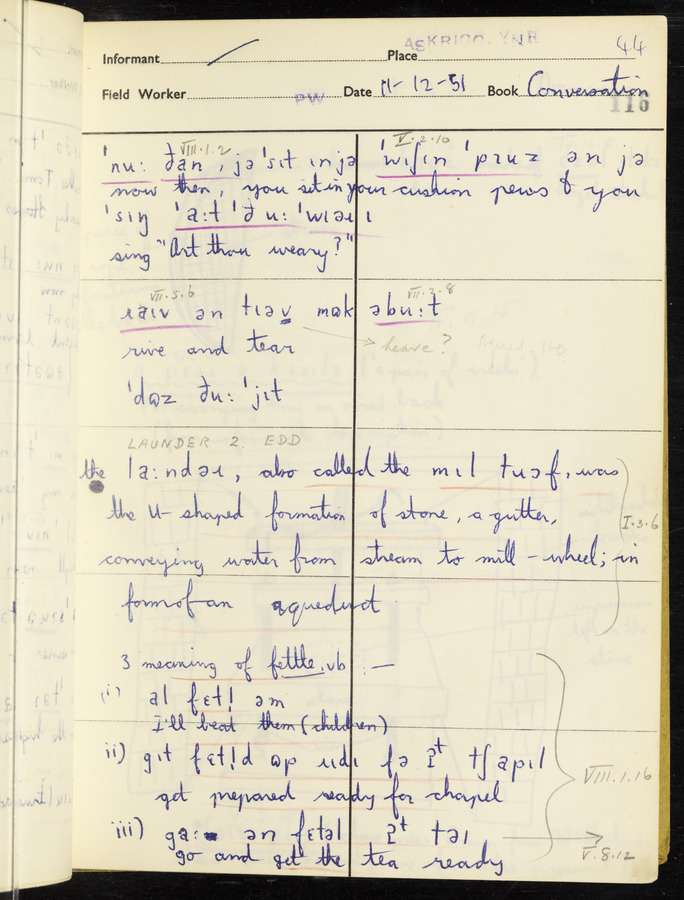 ASKRIGG, YNR
44
Informant
Place
Field Worker PW Date 11-12-51 Book Conversation
116
VIII.1.2 V.2.10
ˈnu: ðan, jə ˈsɪt ɪn jə ˈwɪʃɪn ˈpɪuz ən jə
now then, you sit in your cushion pews & you
ˈsɪŋ ˈa:t ˈðu: ˈwɪəɹɪ
sing "Art thou weary?"
VII.5.6 VII.3.8
ɹaɪv ən tɪəv mak əbu:t
rive and tear
heave?
ˈdɷz ðu: ˈjɪt
LAUNDER 2. EDD
the la:ndəɹ, also called the mɪl tɹɔf, was
the U-shaped formation of stone, a gutter,
I.3.6
conveying water from stream to mill-wheel; in
form of an aqueduct
3 meaning of fettle, vb :—
(i) al fɛtl̩ əm
I'll beat them (children)
ii) gɪt fɛtl̩d ɷp ɹɪdɪ fə ʔt tʃapɪl
VIII.1.16
get prepared ready for chapel
iii) ga: ən fɛtəl ʔt təɪ
V.8.12
go and get the tea ready